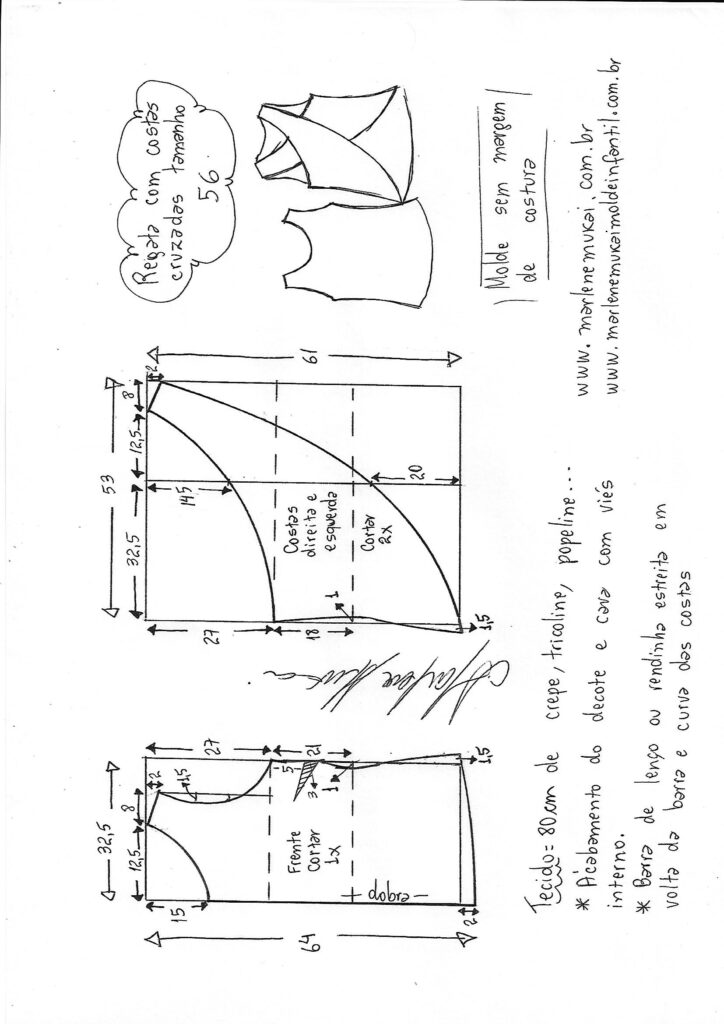 Regata com costas
cruzadas tamanho
56.
Molde sem margem
de costura
www.marlenemukai.com.br
www.marlenemukaimoldeinfantil.com.br
61
2
8
12,5
53
32,5
145
20
Costas
direita e
esquerda
Cortar
2x
1
27
18
1,5
27
21
1,5
2
8
1,5
32,5
12,5
5
3
1
Frente
Cortar
1x
dobra
15
64
2
Tecido = 80cm de crepe, tricoline, popeline...
* Acabamento do decote e cava com viés
interno.
* Barra de lenço ou rendinha estreita em
volta da barra e curva das costas